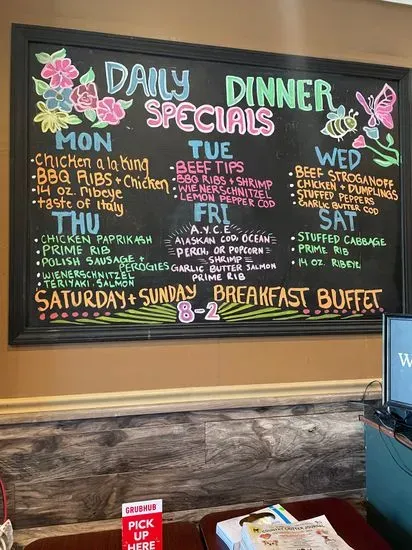 DAILY DINNER
SPECIALS
MON
CHICKEN a la KING
BBQ RIBS + CHICKEN
14 oz. RIBEYE
taste of ITALY
TUE
BEEF TIPS
BBQ RIBS + SHRIMP
WIENERSCHNITZEL
LEMON PEPPER COD
WED
BEEF STROGANOFF
CHICKEN + DUMPLINGS
STUFFED PEPPERS
GARLIC BUTTER COD
THU
CHICKEN PAPRIKASH
PRIME RIB
POLISH SAUSAGE +
PEROGIES
WIENERSCHNITZEL
TERIYAKI SALMON
FRI
A.Y.C.E
ALASKAN COD, OCEAN
PERCH, OR POPCORN
SHRIMP
GARLIC BUTTER SALMON
PRIME RIB
SAT
STUFFED CABBAGE
PRIME RIB
14 OZ. RIBEYE
SATURDAY + SUNDAY BREAKFAST BUFFET
8-2
W
GRUBHUB
PICK UP
HERE